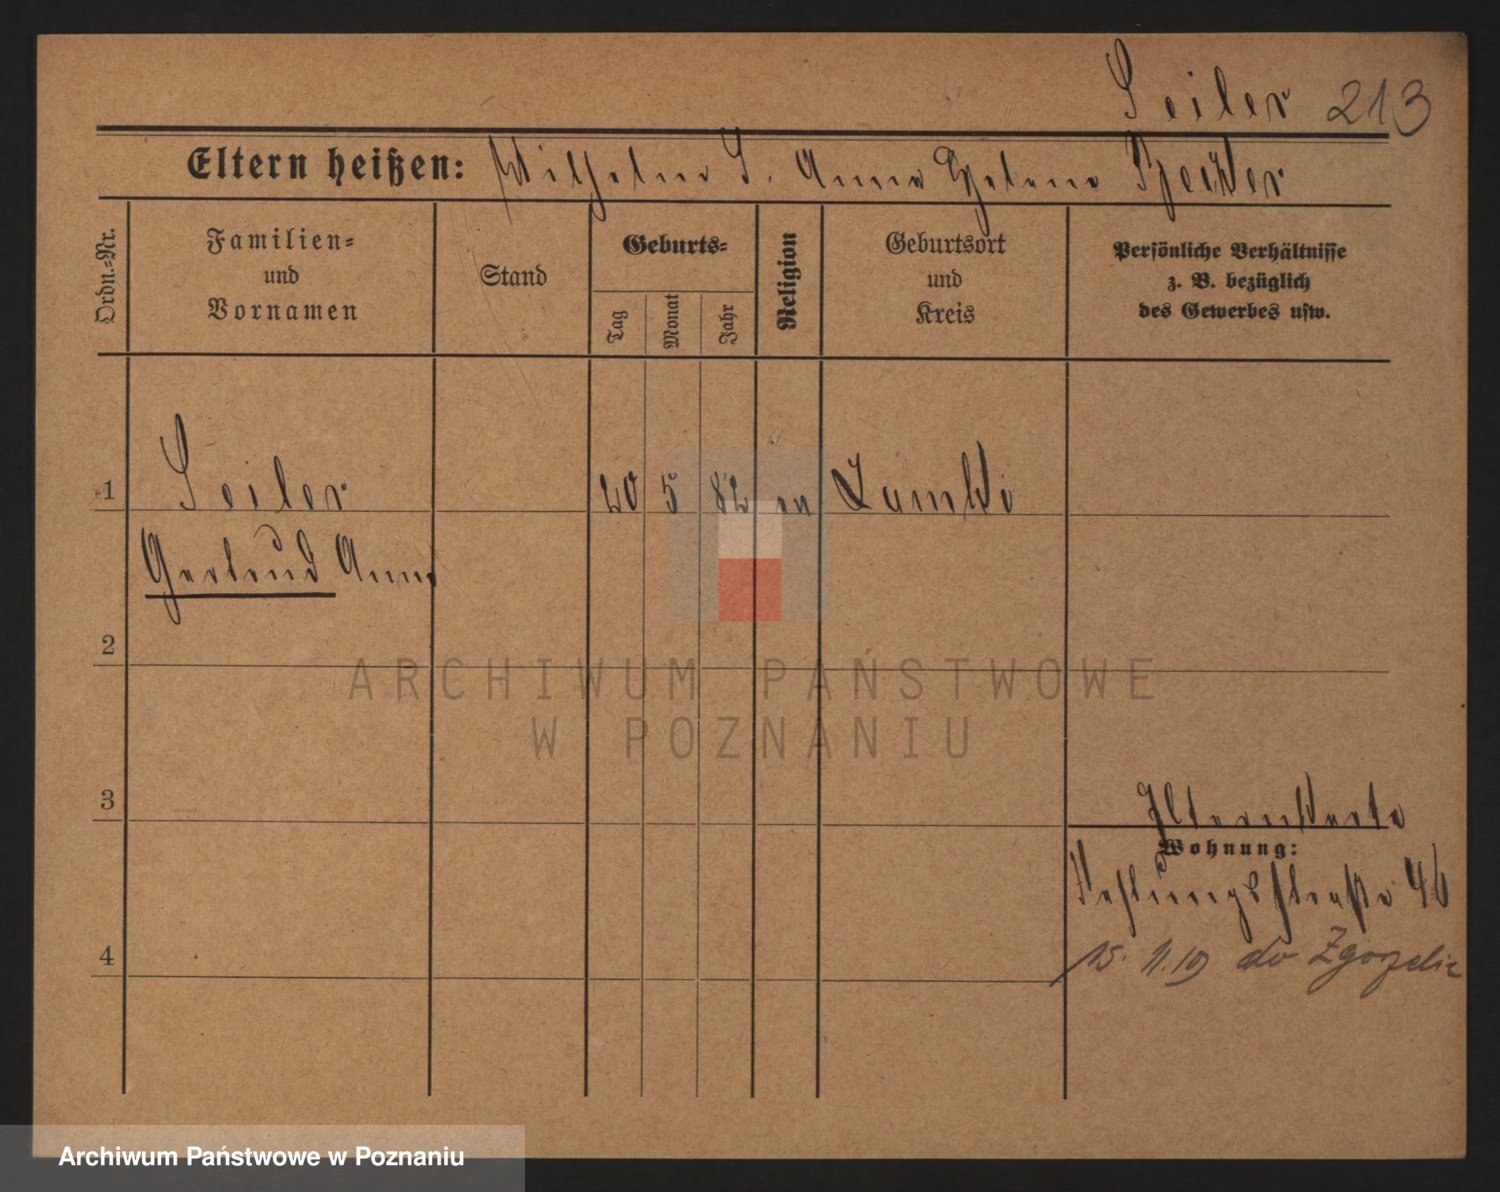 Seiler 213
Eltern heißen: Wilhelm S. Anna Helene
Ordn.-Nr.
Familien-
und
Vornamen
Stand
Geburts-
Tag
Monat
Jahr
Religion
Geburtsort
und
Kreis
Persönliche Verhältnisse
z. B. bezüglich
des Gewerbes usw.
1 Seiler 20 5 82 ev
Gertrud Anna
2
3
Wohnung:
Festungsstraße 46
15. 11. 19 do Zgorzelic
4
ARCHIWUM PAŃSTWOWE
W POZNANIU
Archiwum Państwowe w Poznaniu